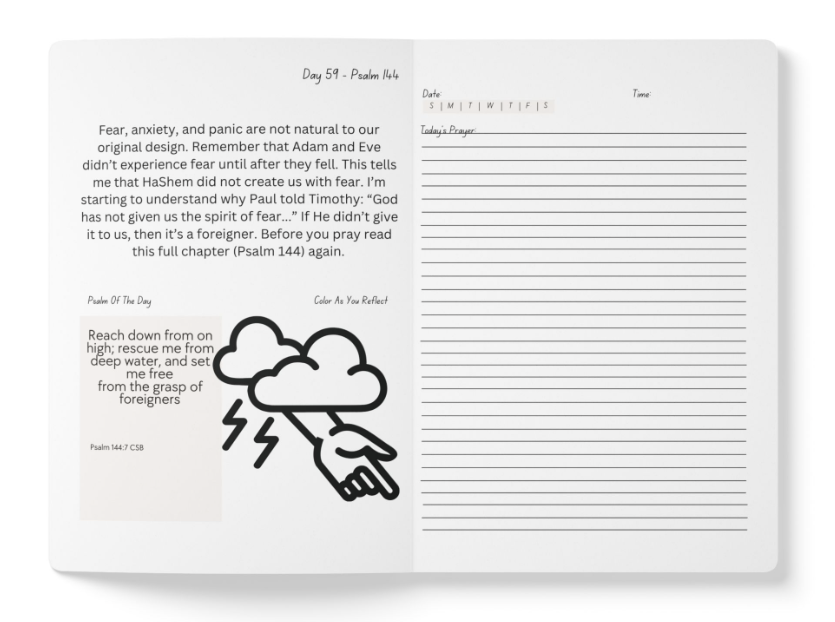 Day 59 - Psalm 144
Fear, anxiety, and panic are not natural to our
original design. Remember that Adam and Eve
didn't experience fear until after they fell. This tells
me that HaShem did not create us with fear. I'm
starting to understand why Paul told Timothy: “God
has not given us the spirit of fear...” If He didn't give
it to us, then it's a foreigner. Before you pray read
this full chapter (Psalm 144) again.
Psalm Of The Day
Color As You Reflect
Reach down from on
high; rescue me from
deep water, and set
me free
from the grasp of
foreigners
Psalm 144:7 CSB
Date:
Time:
S | M | T | W | T | F | S
Today's Prayer: